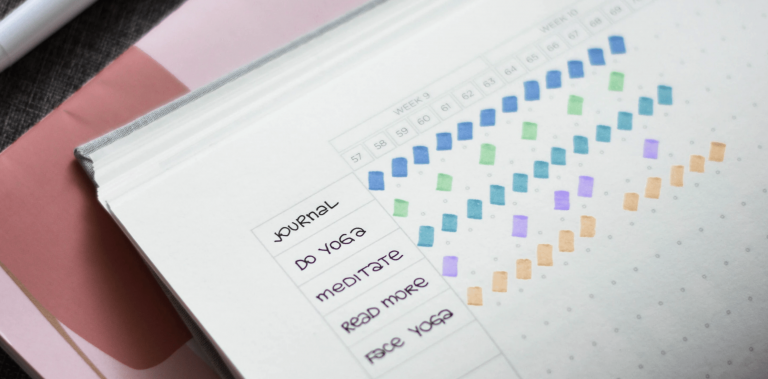 WEEK 9
WEEK 10
57 58 59 60 61 62 63 64 65 66 67 68 69
JOURNAL
DO YOGA
MEDITATE
READ MORE
FACE YOGA